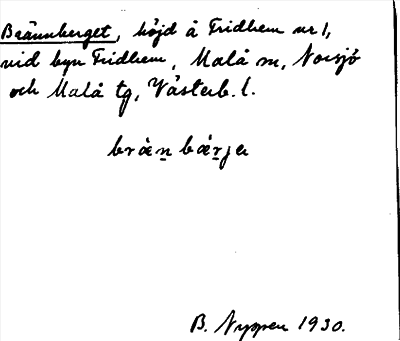 Brännberget, höjd å Fridhem nr 1,
vid byn Fridhem, Malå sn, Norsjö
och Malå tg, Västerb. l.
bræ̀n bæ̀rjə
B. Nyppen 1930.